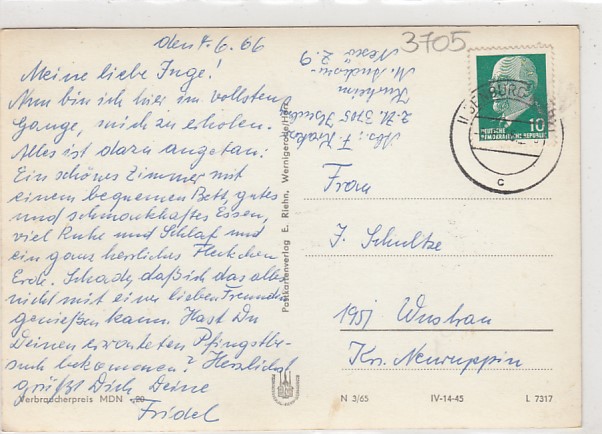 den 4.6.66
Meine liebe Inge!
Nun bin ich hier im vollsten
Gange, mich zu erholen.
Alles ist dazu angetan:
Ein schönes Zimmer mit
einem bequemen Bett, gutes
und schmackhaftes Essen,
viel Ruhe und Schlaf und
ein ganz herrliches Fleckchen
Erde. Schade, daß ich das alles
nicht mit einer lieben Freundin
genießen kann. Hast Du
Deinen erwarteten Pfingstbe-
such bekommen? Herzlichst
grüßt Dich Deine
Fridel
Verbraucherpreis MDN -,20
Postkartenverlag E. Riehn, Wernigerode/Harz
3705
Abs.: F.
z. Zt. 3705
Kurheim
M. Andersen-
Nexö Z. 9
ILSENBURG
c
10
DEUTSCHE
DEMOKRATISCHE REPUBLIK
Frau
J. Schultze
1951 Wustrau
Krs. Neuruppin
N 3/65 IV-14-45 L 7317